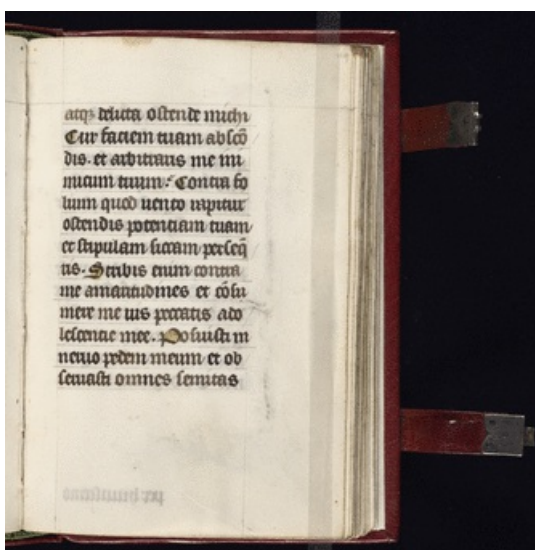 atq; delicta ostende michi
Cur faciem tuam abscō
dis. et arbitraris me ini
micum tuum: Contra fo
lium quod uento rapitur
ostendis potentiam tuam
et stipulam siccam perseq̄
ris. Scribis enim contra
me amaritudines et cōsu
mere me uis peccatis ado
lescentie mee. Posuisti in
neruo pedem meum et ob
seruasti omnes semitas